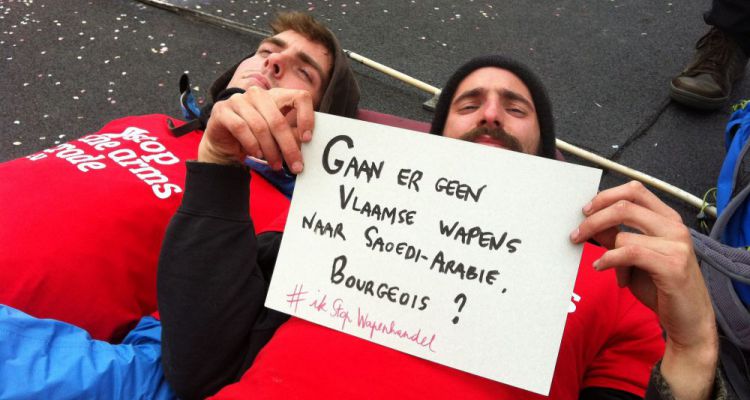 stop
the arms
trade
GAAN ER GEEN
VLAAMSE WAPENS
NAAR SAOEDI-ARABIE,
BOURGEOIS ?
#ik Stop Wapenhandel